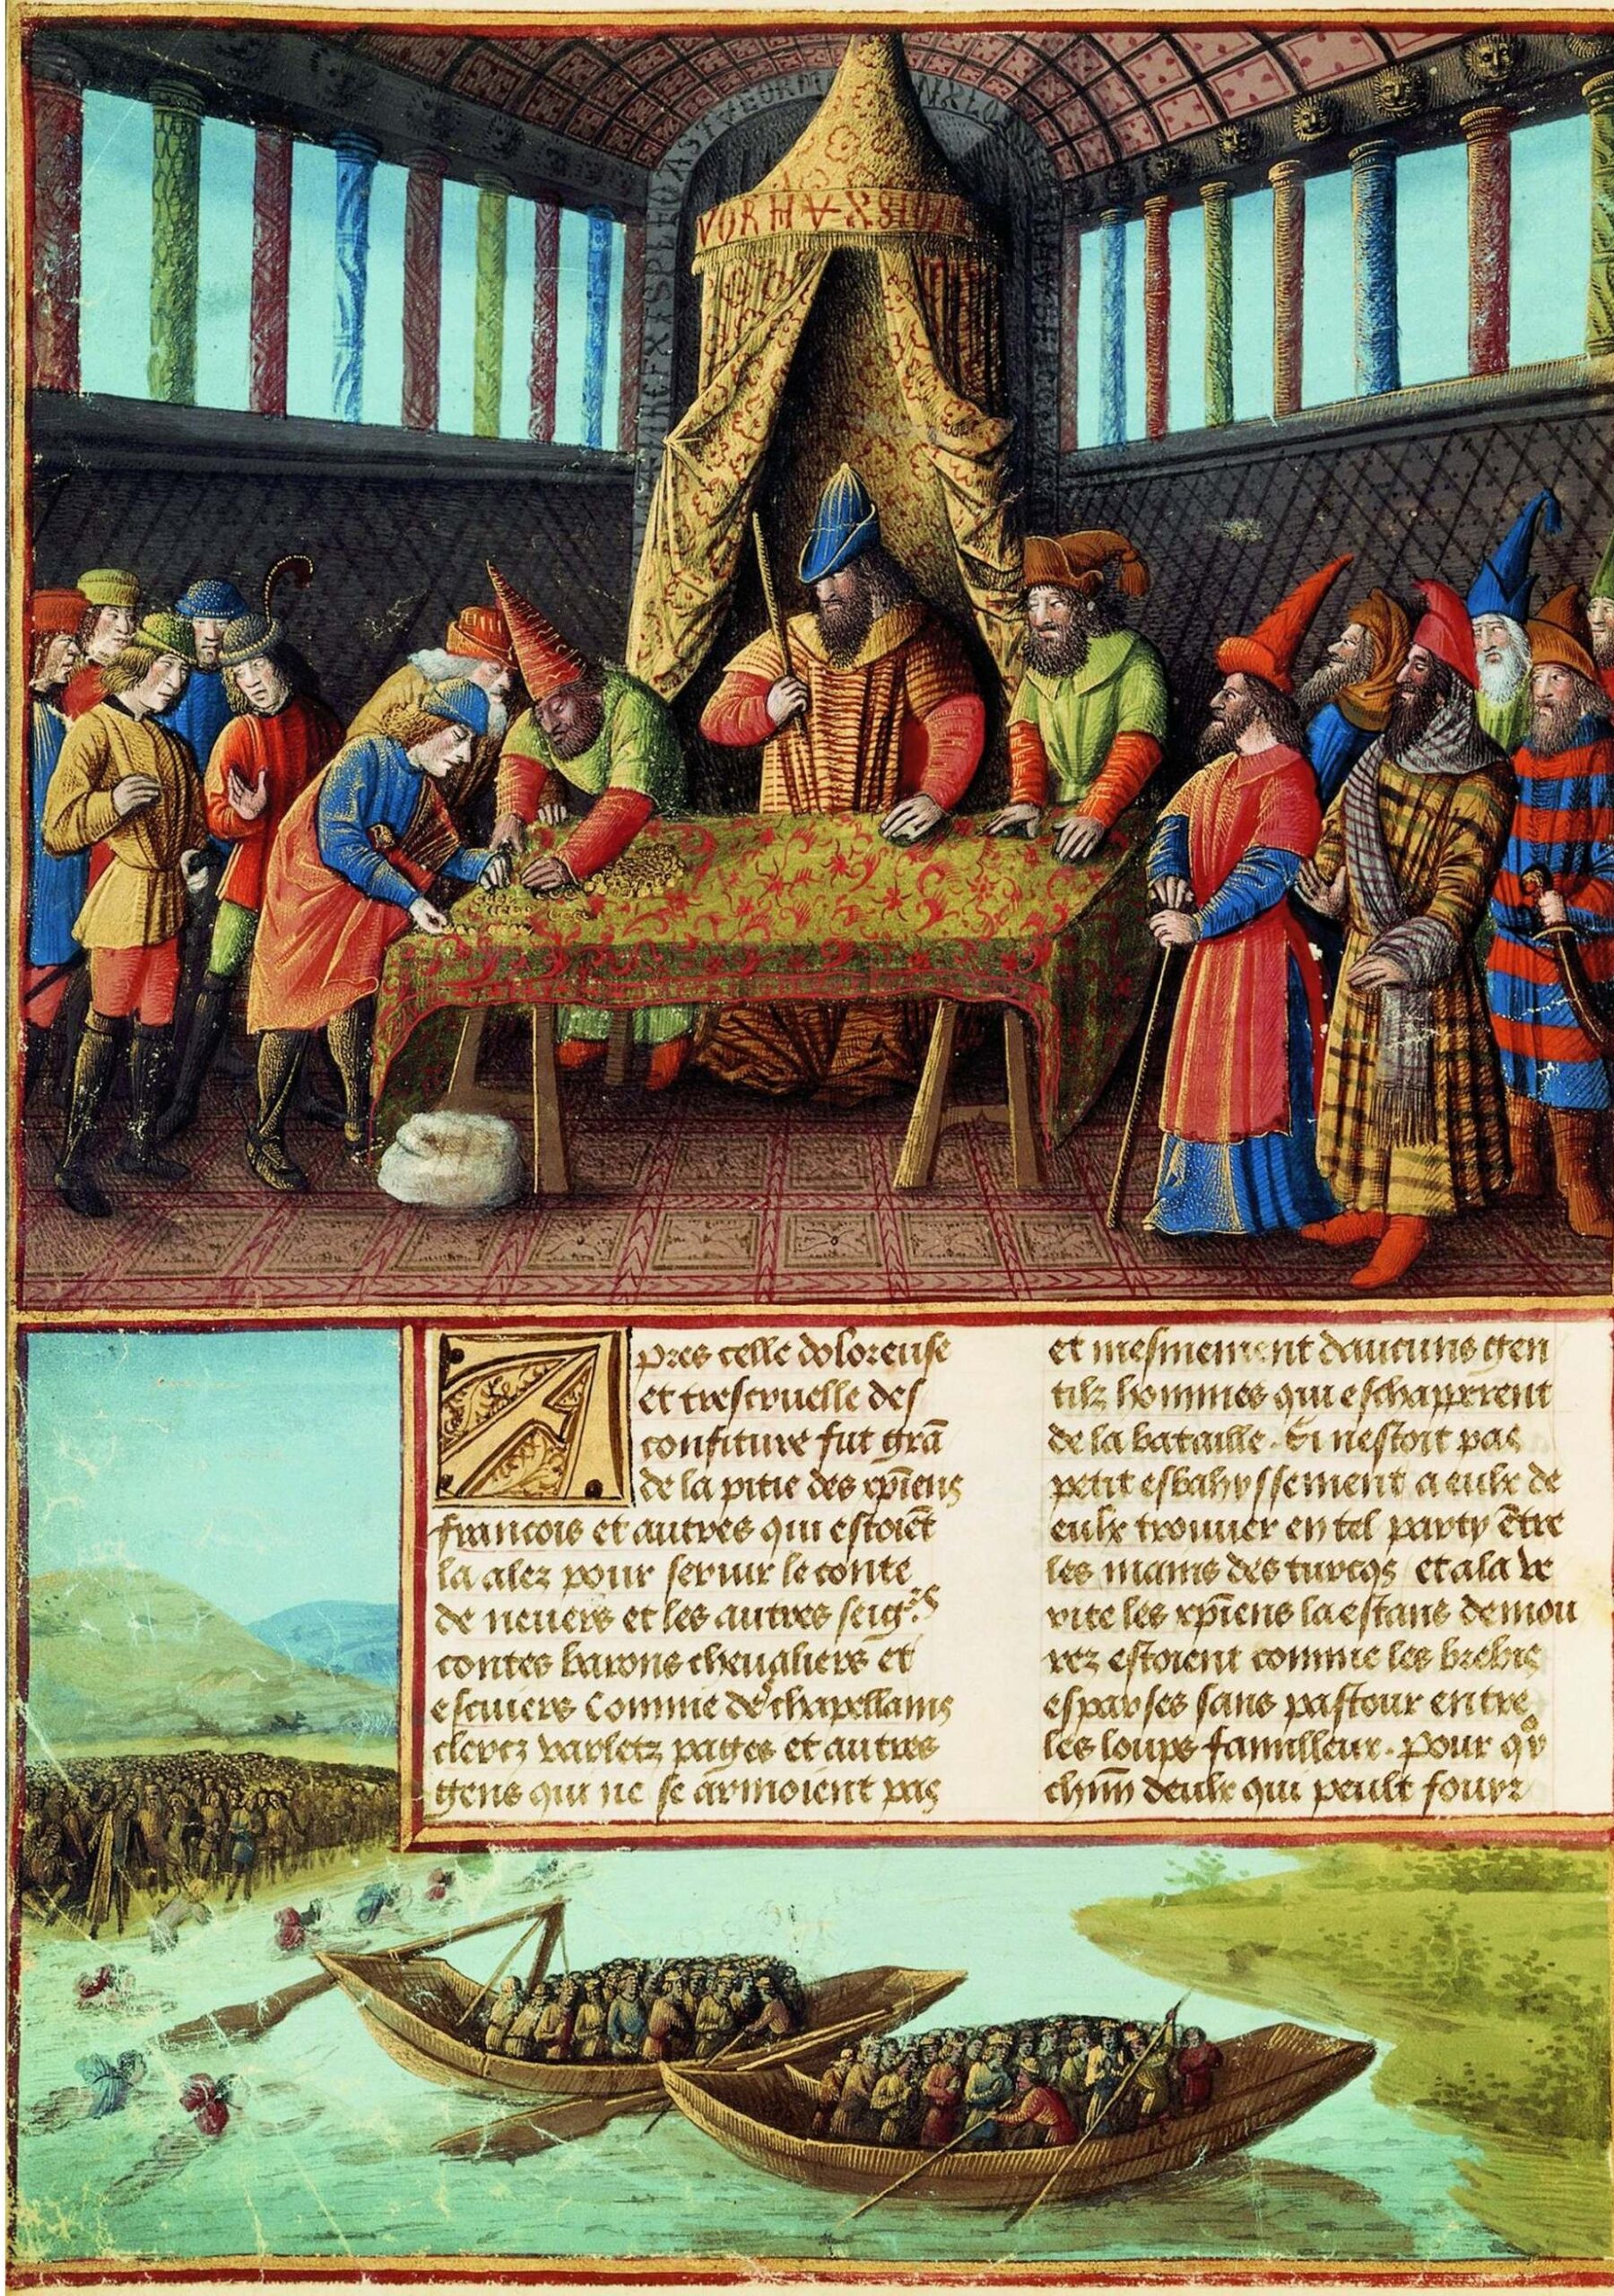 pres celle doloreuse
et trescruelle des
confiture fut grã
de la pitie des xp̃iens
francois et autres qui estoiẽt
la alez pour seruir le conte
de neuers et les autres seigrs
contes barons cheualiers et
escuiers Comme de chapellains
clercz varletz pages et autres
gens qui ne se armoient pas
et mesmement daucuns gen
tilz hommes qui eschapperent
de la bataille. Si nestoit pas
petit esbahyssement a eulx de
eulx trouuer en tel party ẽtre
les mains des turcqs et a la ve
rite les xp̃iens la estans demou
rez estoient comme les brebis
esparses sans pastour entre
les loups famılleux. pour qͦy
chũn deulx qui peult fouyr